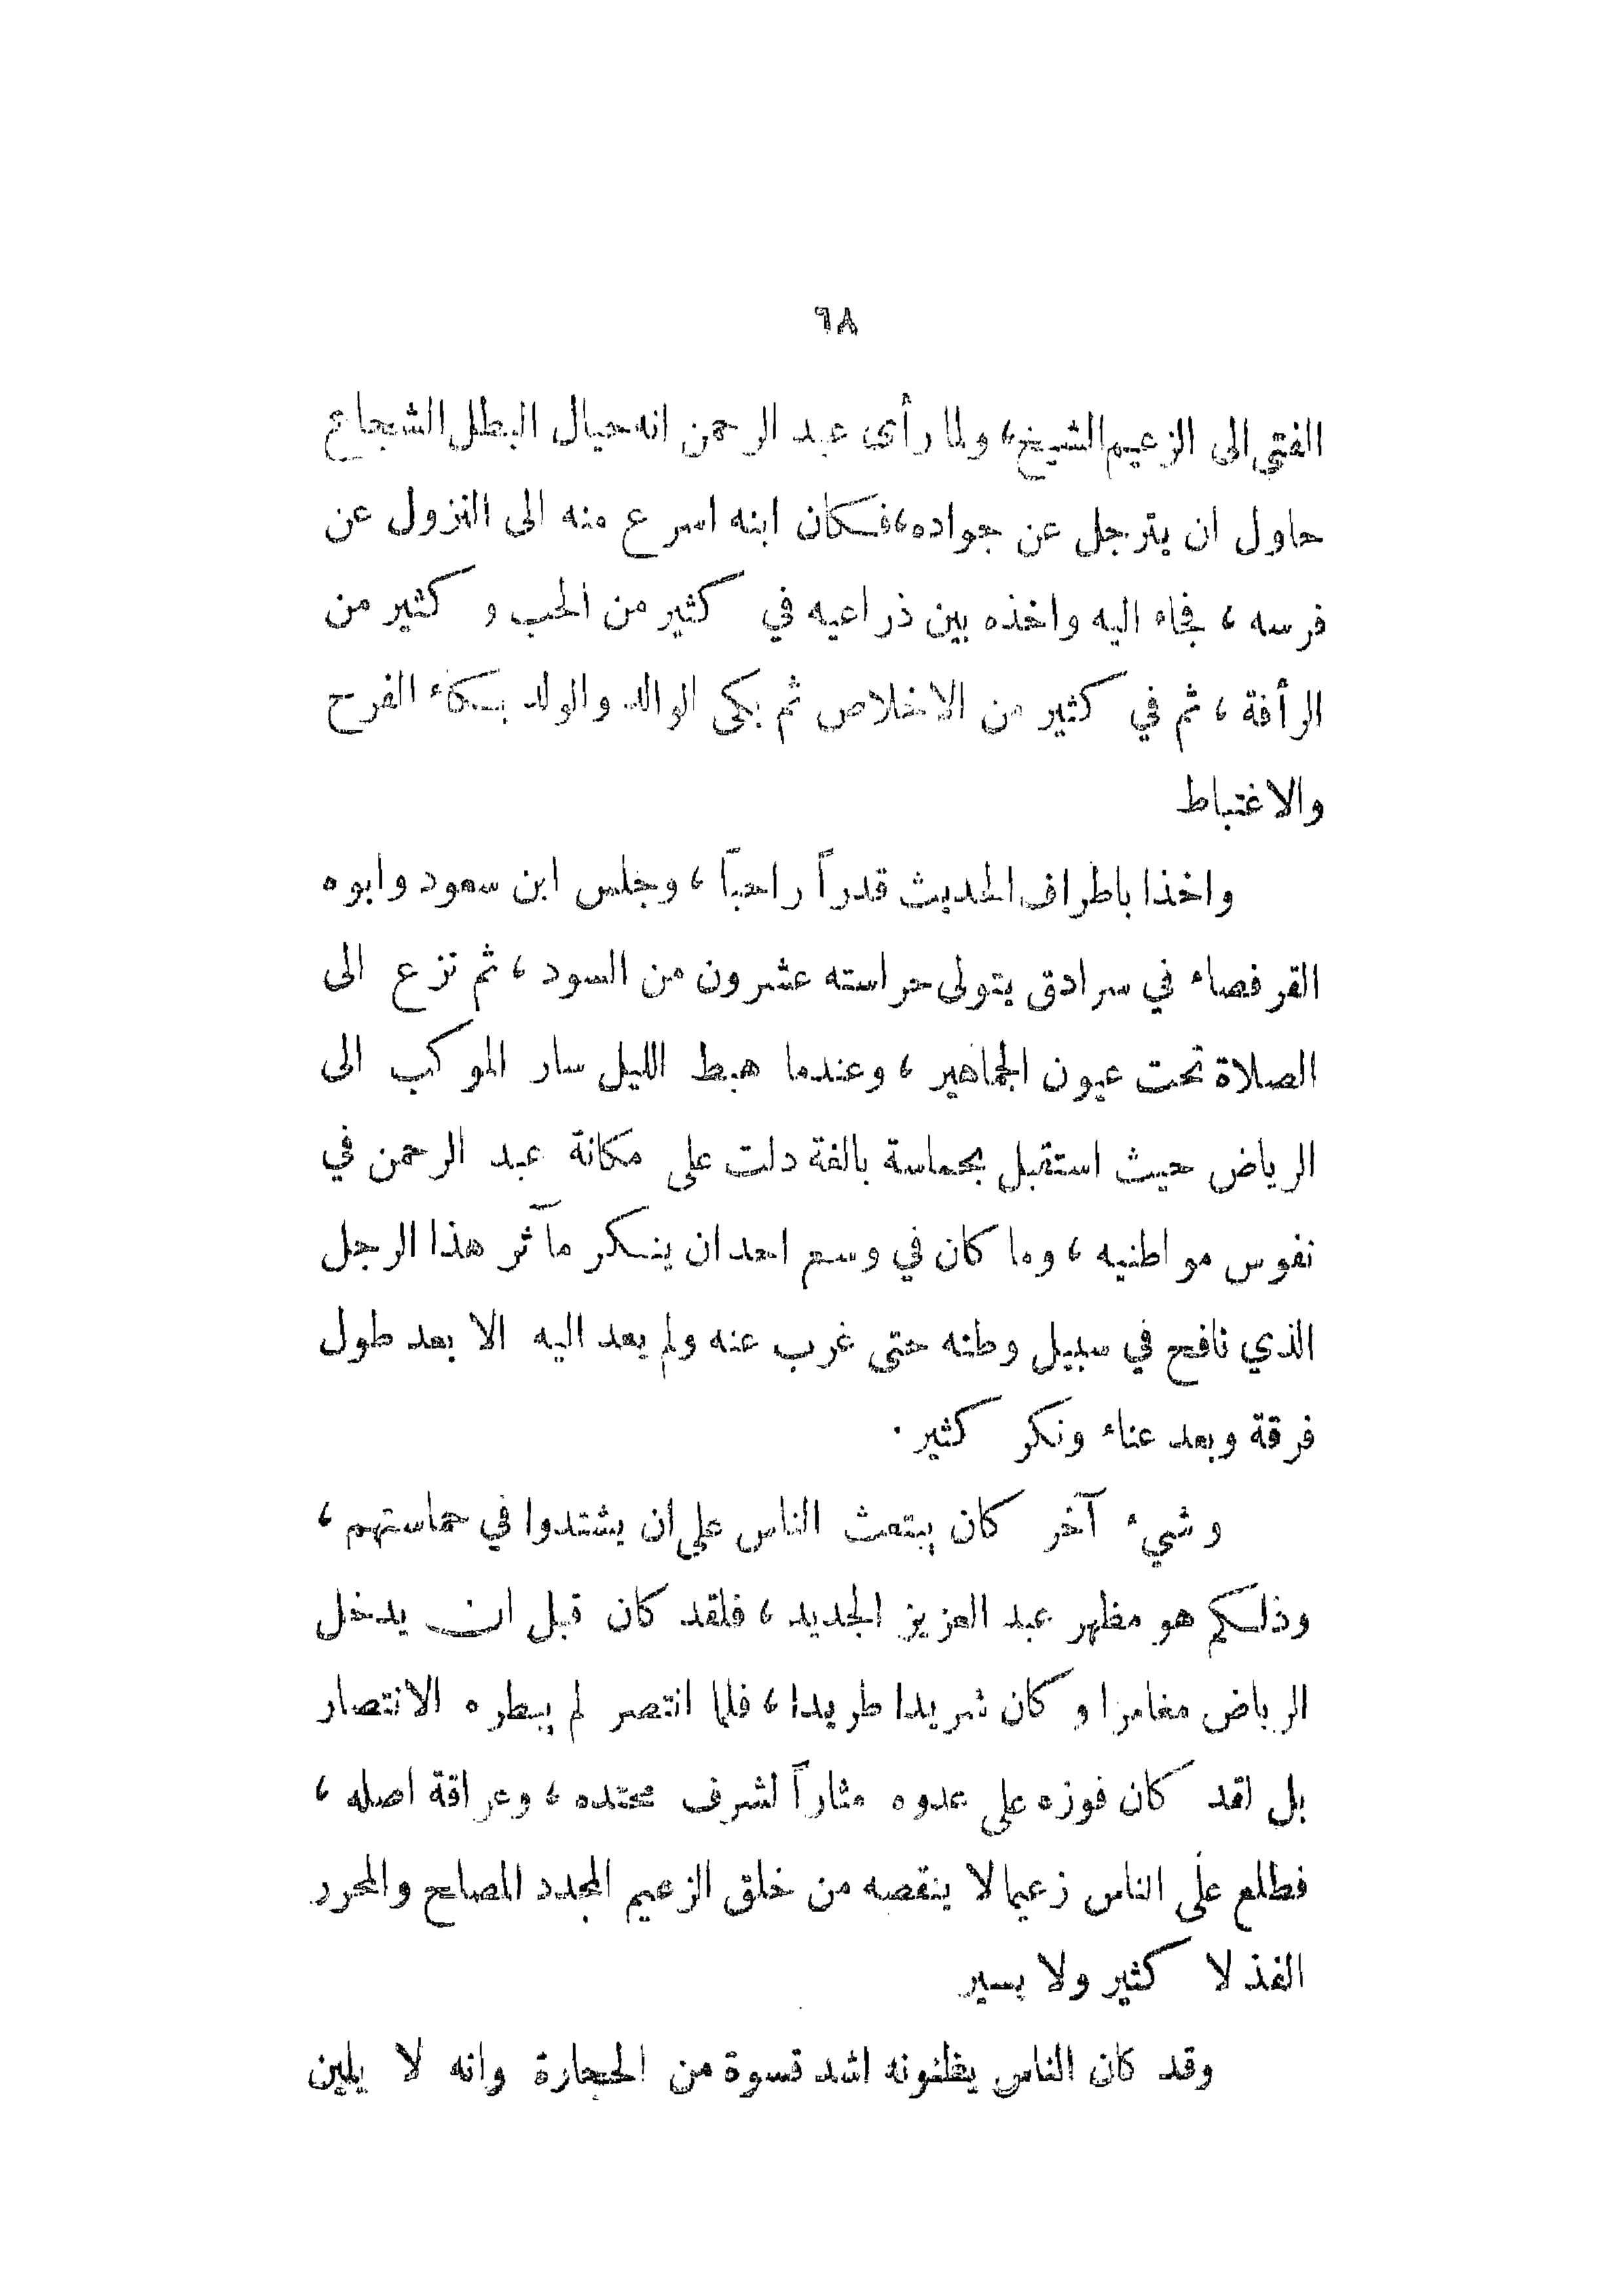 ٦٨
الفتى الى الزعيم الشيخ، ولما رأى عبد الرحمن انه حيال البطل الشجاع
حاول ان يترجل عن جواده، فكان ابنه اسرع منه الى النزول عن
فرسه، فجاء اليه واخذه بين ذراعيه في كثير من الحب وكثير من
الرأفة، ثم في كثير من الاخلاص ثم بكى الوالد والولد بكاء الفرح
والاغتباط
واخذا باطراف الحديث قدراً راحباً، وجلس ابن سعود وابوه
القرفصاء في سرادق يتولى حراسته عشرون من السود، ثم نزع الى
الصلاة تحت عيون الجماهير، وعندما هبط الليل سار الموكب الى
الرياض حيث استقبل بحماسة بالغة دلت على مكانة عبد الرحمن في
نفوس مواطنيه، وما كان في وسع احد ان ينكر مآثر هذا الرجل
الذي نافح في سبيل وطنه حتى غرب عنه ولم يعد اليه الا بعد طول
فرقة وبعد عناء ونكر كثير.
وشيء آخر كان يبتعث الناس على ان يشتدوا في حماستهم،
وذلكم هو مظهر عبد العزيز الجديد، فلقد كان قبل ان يدخل
الرياض مغامرا وكان شريدا طريدا، فلما انتصر لم يبطره الانتصار
بل لقد كان فوزه على عدوه مثاراً لشرف محتده، وعراقة اصله،
فطلع على الناس زعيما لا ينقصه من خلق الزعيم المجدد المصلح والمحرر
الفذ لا كثير ولا يسير
وقد كان الناس يظنونه اشد قسوة من الحجارة وانه لا يلين